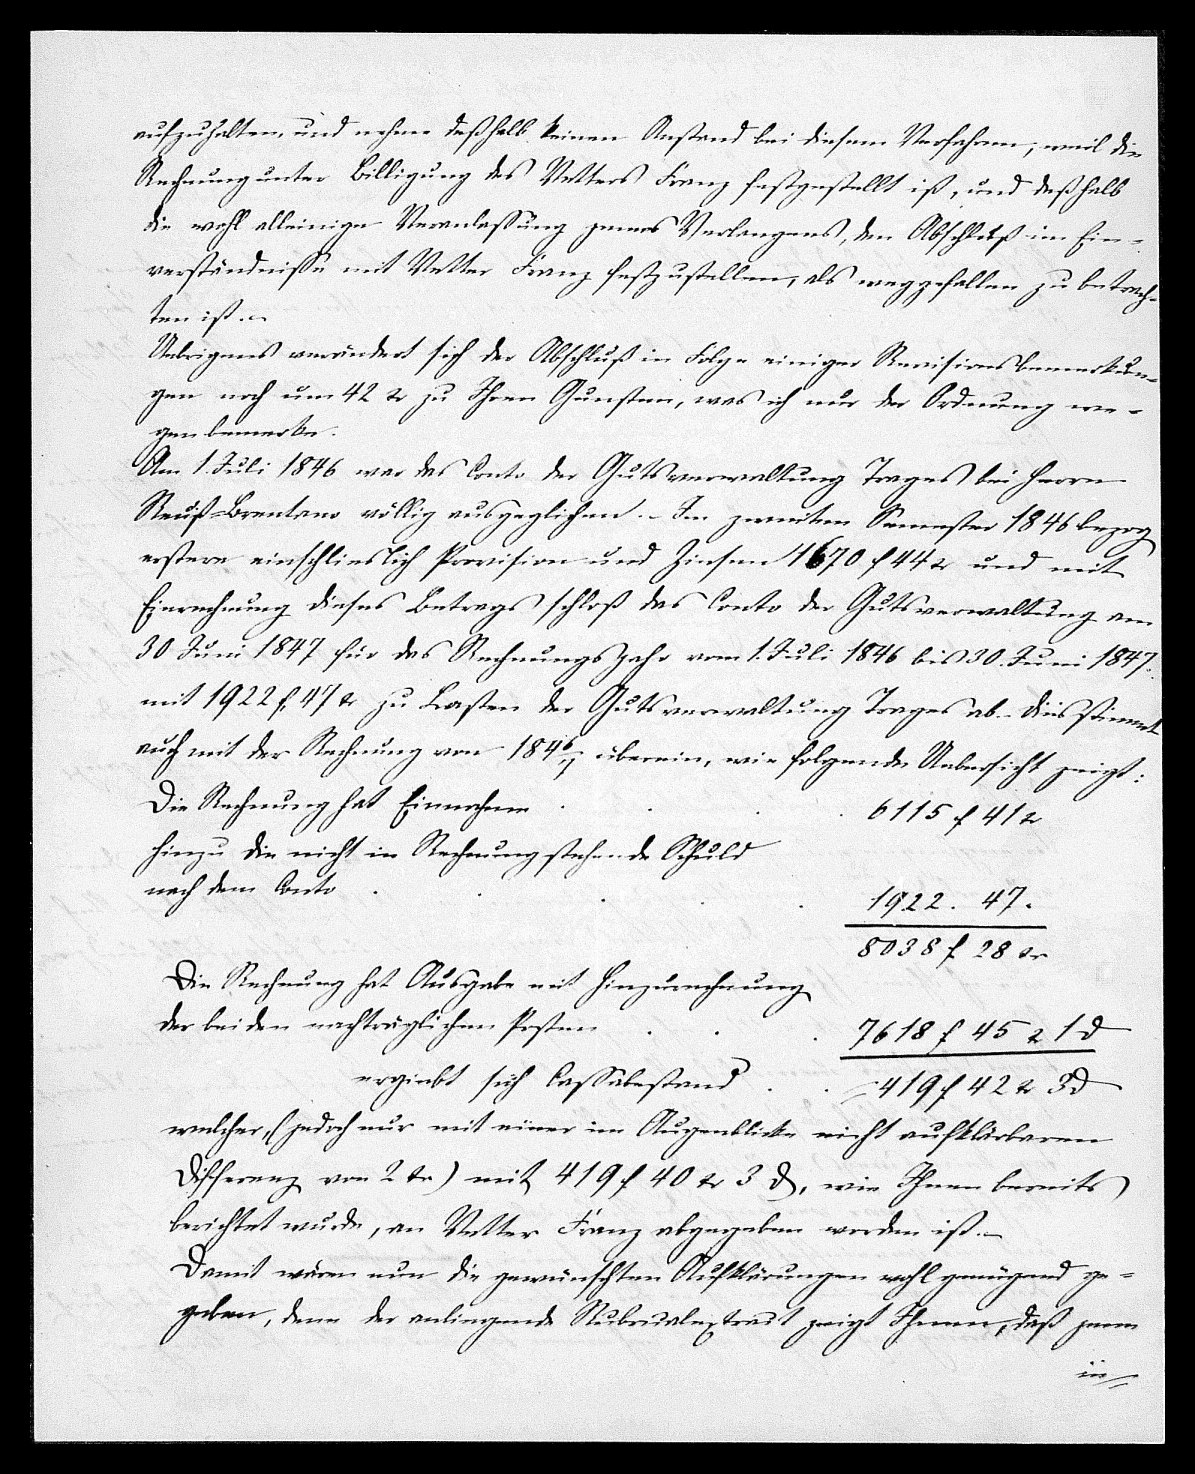 aufzuhalten, und nehme deßhalb keinen Anstand bei diesem Verfahren, weil die
Rechnung unter Billigung des Vetters Franz festgestellt ist, und deßhalb
die wohl alleinige Veranlassung jenes Verlangens, den Abschluß im Ein-
verständnisse mit Vetter Franz festzustellen, als weggefallen zu betrach-
ten ist.
Uebrigens verändert sich der Abschluß in Folge einiger Revisionsbemerkun-
gen noch um 42 xr zu Ihren Gunsten, was ich nur der Ordnung we-
gen bemerke.
Am 1. Juli 1846 war das Conto der Gutsverwaltung Trages bei Herrn
Reuß-Brentano völlig ausgeglichen. – Im zweiten Semester 1846 bezog
erstere einschlieslich Provision und Zinsen 1670 f 44 xr und mit
Einrechnung dieses Betrags schloß das Conto der Gutsverwaltung am
30 Juni 1847 für das Rechnungsjahr vom 1. Juli 1846 bis 30. Juni 1847.
mit 1922 f. 47 xr zu Lasten der Gutsverwaltung Trages ab. – dies stimmt
auch mit der Rechnung von 1846/7 überein, wie folgende Uebersicht zeigt:
Die Rechnung hat Einnahme . . . . 6115 f 41 xr
hinzu die nicht in Rechnung stehende Schuld
nach dem Conto . . . . . 1922. 47.
8038 f 28 xr
Die Rechnung hat Ausgabe mit Hinzurechnung
der beiden nachträglichen Posten . . . 7618 f 45 xr 1 d
ergiebt sich Cassabestand . . 419 f 42 xr 3 d
welcher, (jedoch nur mit einer im Augenblicke nicht aufklärbaren
Differenz von 2 xr) mit 419 f 40 xr 3 d, wie Ihnen bereits
berichtet wurde, an Vetter Franz abgegeben worden ist. –
Damit wären nun die gewünschten Aufklärungen wohl genügend ge-
geben, denn der anliegende Rubralextract zeigt Ihnen, daß jene
in